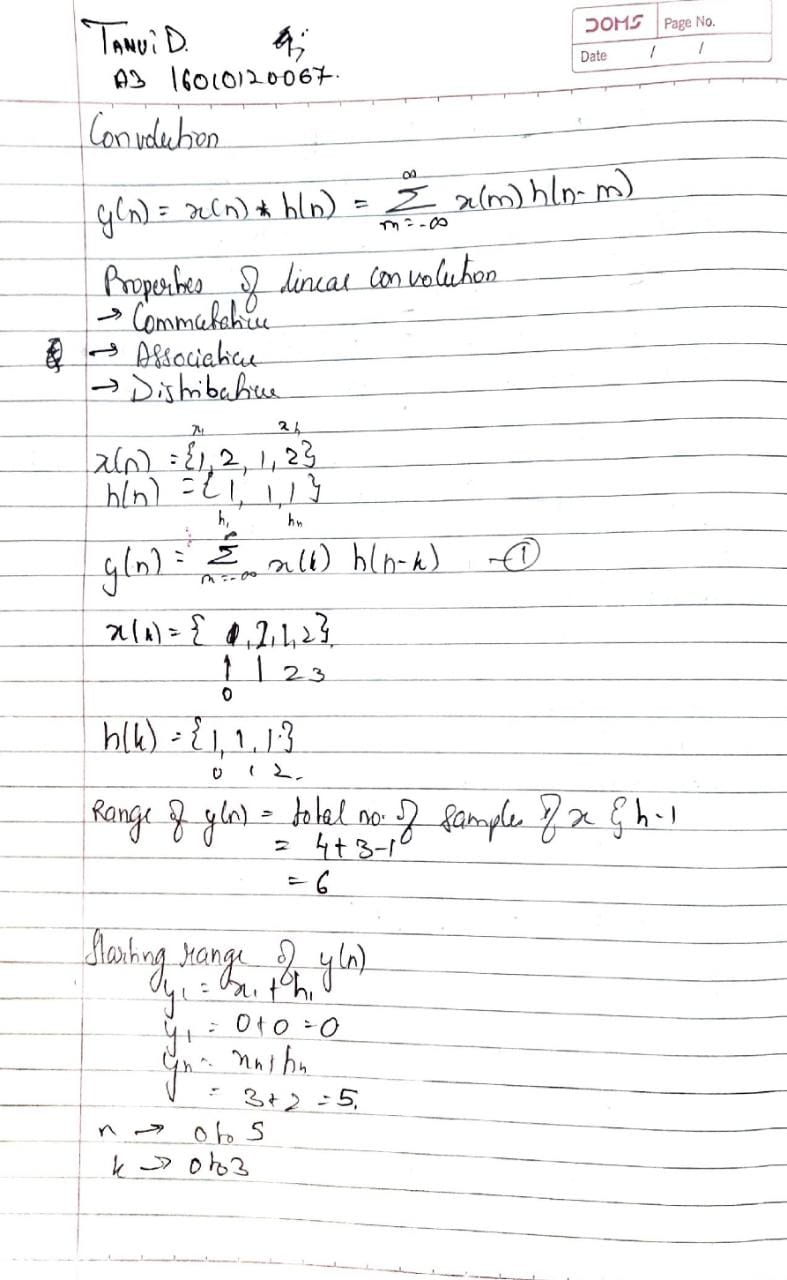 TANVI D.
DOMS Page No.
Date / /
A3 16010120067.
Convolution
y(n) = x(n) * h(n) = ∞ Σ m=-∞ x(m) h(n-m)
Properties of linear convolution
→ Commutative
→ Associative
→ Distributive
x(n) = {1, 2, 1, 2}
h(n) = {1, 1, 1}
h₁ hn
y(n) = Σ m=-∞ x(k) h(n-k) - ①
x(k) = { 1, 2, 1, 2}
↑ 1 2 3
0
h(k) = {1, 1, 1}
0 1 2.
Range of y(n) = total no. of samples of x & h-1
= 4+3-1
= 6
Starting range of y(n)
y₁ = x₁ + h₁
y₁ = 0+0 = 0
yn = xn + hn
= 3+2 = 5.
n → 0 to 5
k → 0 to 3